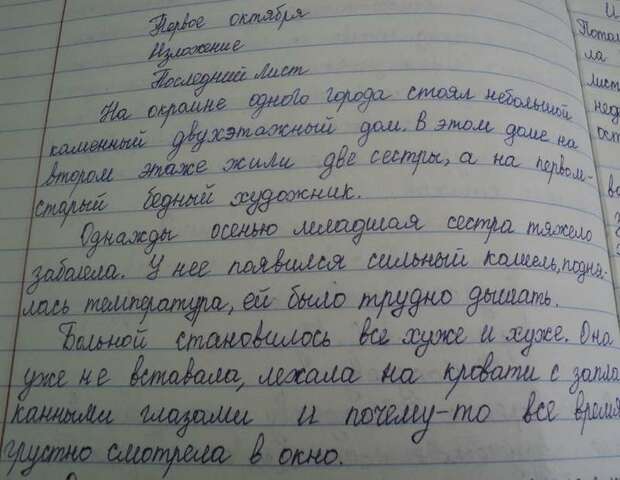 Первое октября
Изложение
Последний лист
На окраине одного города стоял небольшой
каменный двухэтажный дом. В этом доме на
втором этаже жили две сестры, а на первом-
старый бедный художник.
Однажды осенью младшая сестра тяжело
заболела. У нее появился сильный кашель, подня-
лась температура, ей было трудно дышать.
Больной становилось все хуже и хуже. Она
уже не вставала, лежала на кровати с запла
канными глазами и почему-то все время
грустно смотрела в окно.
И
Пота
ла
лист
нед
ост